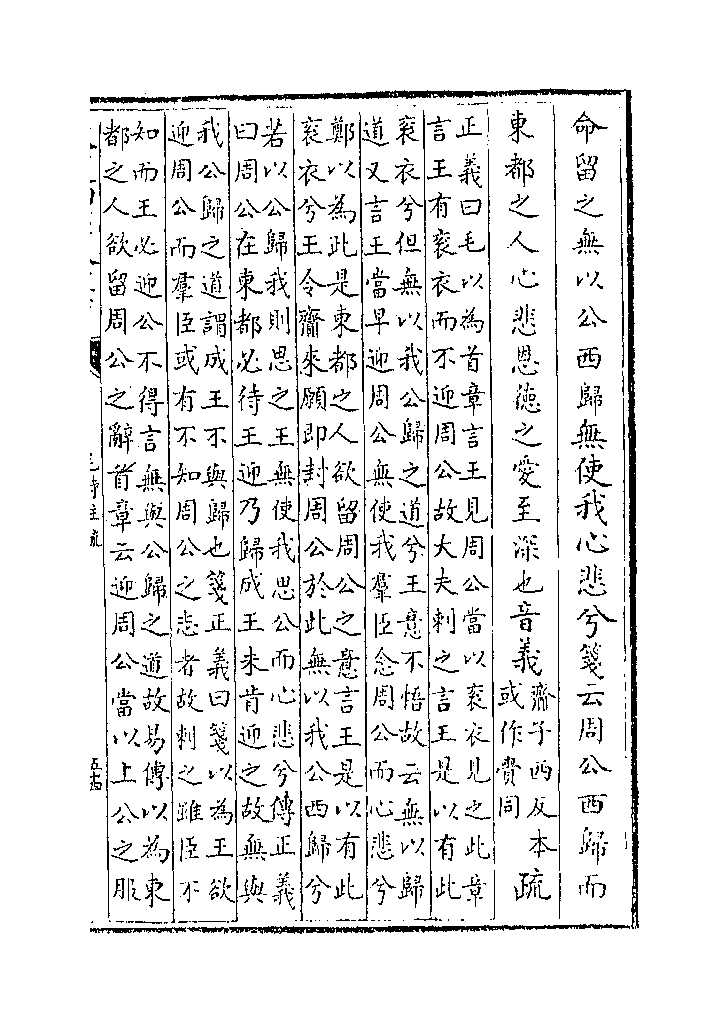 命留之無以公西歸無使我心悲兮箋云周公西歸而
東都之人心悲恩德之愛至深也音義
齎子西反本
或作賫同
疏
正義曰毛以為首章言王見周公當以衮衣見之此章
言王有衮衣而不迎周公故大夫刺之言王是以有此
衮衣兮但無以我公歸之道兮王意不悟故云無以歸
道又言王當早迎周公無使我羣臣念周公而心悲兮
鄭以為此是東都之人欲留周公之意言王是以有此
衮衣兮王令齎來願即封周公於此無以我公西歸兮
若以公歸我則思之王無使我思公而心悲兮傳正義
曰周公在東都必待王迎乃歸成王未肯迎之故無與
我公歸之道謂成王不與歸也箋正義曰箋以為王欲
迎周公而羣臣或有不知周公之志者故刺之雖臣不
知而王必迎公不得言無與公歸之道故易傳以為東
都之人欲留周公之辭首章云迎周公當以上公之服
毛詩注疏
五十四